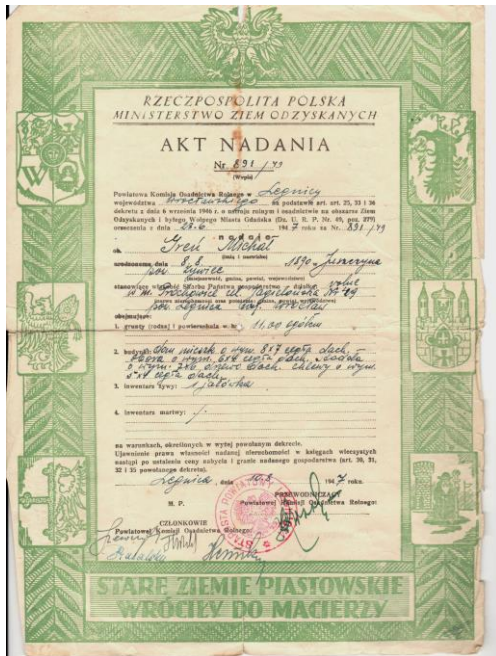 RZECZPOSPOLITA POLSKA
MINISTERSTWO ZIEM ODZYSKANYCH
AKT NADANIA
Nr. 891/49
(Wypis)
Powiatowa Komisja Osadnictwa Rolnego w Legnicy
województwa Wrocławskiego na podstawie art. art. 25, 33 i 36
dekretu z dnia 6 września 1946 r. o ustroju rolnym i osadnictwie na obszarze Ziem
Odzyskanych i byłego Wolnego Miasta Gdańska (Dz. U. R. P. Nr. 49, poz. 279)
orzeczenia z dnia 26.6 1947 roku za Nr. 891/49
nadaje
ob. Greń Michał
(imię i nazwisko)
urodzonemu dnia 8.8. 1890 w Juszczyna
pow. Żywiec
(miejscowość, gmina, powiat, województwo)
stanowiące własność Skarbu Państwa gospodarstwo - działkę rolne
w m. Prochowice ul. Jagiellońska Nr 29
pow. Legnica woj. Wrocław
obejmujące:
1. grunty (rodzaj i powierzchnia w ha) 11,00 ogółem
2. budynki: Dom mieszk. o wym. 8x7 cegła dach,
o wym. 7x6 drzewo dach. chlewy o wym.
5x4 cegła dach.
3. inwentarz żywy: 1 jałówka
4. inwentarz martwy:
na warunkach, określonych w wyżej powołanym dekrecie.
Ujawnienie prawa własności nadanej nieruchomości w księgach wieczystych
nastąpi po ustaleniu ceny nabycia i granic nadanego gospodarstwa (art. 30, 31,
32 i 35 powołanego dekretu).
Legnica, dnia 10.8. 1947 roku.
M. P.
PRZEWODNICZĄCY
Powiatowej Komisji Osadnictwa Rolnego:
CZŁONKOWIE
Powiatowej Komisji Osadnictwa Rolnego:
STARE ZIEMIE PIASTOWSKIE
WRÓCIŁY DO MACIERZY